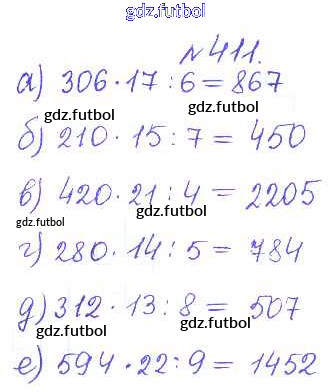 gdz.futbol
№411.
а) 306·17:6=867
gdz.futbol
б) 210·15:7=450
gdz.futbol
в) 420·21:4=2205
gdz.futbol gdz.futbol
г) 280·14:5=784
gdz.futbol
д) 312·13:8=507
gdz.futbol gdz.futbol
е) 594·22:9=1452